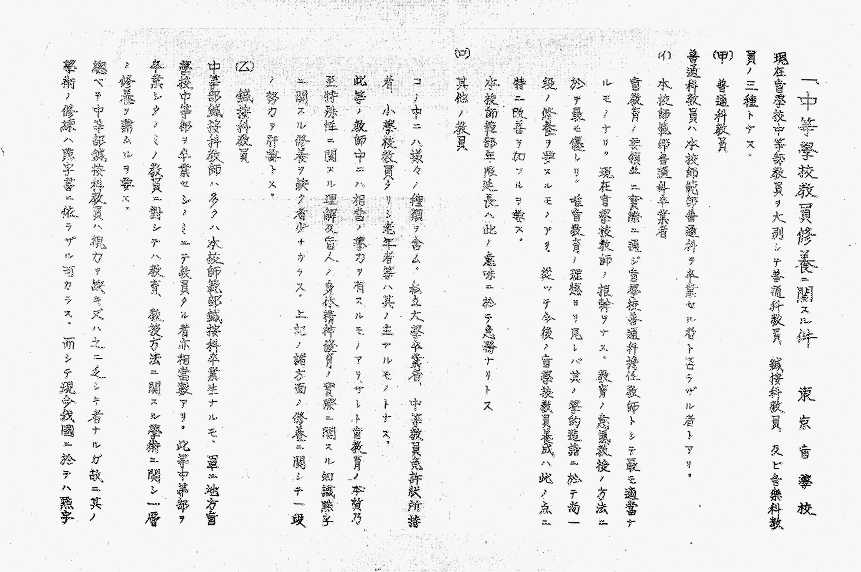 「中等學校教員修養ニ關スル件　東京盲學校
現在盲學校中等部教員ヲ大別シテ普通科教員、鍼按科教員、及ビ音樂科教
員ノ三種トナス。
(甲)　普通科教員
普通科教員ハ本校師範部普通科ヲ卒業セル者ト否ラザル者トアリ。
(イ)　本校師範部普通科卒業者
盲教育ノ要領並ニ實際ニ通ジ盲學校普通科擔任教師トシテ最モ適當ナ
ルモノナリ。現在盲學校教師ノ根幹ヲナス。教育ノ意氣教授ノ方法ニ
於テ最モ優レリ。唯盲教育ノ理想ヨリ見レバ其ノ學的造詣ニ於テ尚一
級ノ修養ヲ要スルモノアリ、從ツテ今後ノ盲學校教員養成ハ此ノ点ニ
特ニ改善ヲ加フルヲ要ス。
本校師範部年限延長ハ此ノ意味ニ於テ急務ナリトス
(ロ)　其他ノ教員
コノ中ニハ様々ノ種類ヲ含ム。私立大學卒業者、中等教員免許狀所持
者、小學校教員タリシ老年者等ハ其ノ主ナルモノトナス。
此等ノ教師中ニハ相當ノ學力ヲ有スルモノアリザレド盲教育ノ本質乃
至特殊性ニ關スル理解及盲人ノ身体精神發育ノ實際ニ關スル知識点字
ニ關スル修養ヲ缺ク者少ナカラス。上記ノ諸方面ノ修養ニ關シテ一段
ノ努力ヲ必要トス。
(乙)　鍼按科教員
中等部鍼按科教師ハ多クハ本校師範部鍼按科卒業生ナルモ、單ニ地方盲
學校中等部ヲ卒業セシノミニテ教員タル者亦相當數アリ。此等中等部ヲ
卒業シタノミノ教員ニ對シテハ教育、教授方法ニ關スル學術ニ關シ一層
ノ修養ヲ積ムルヲ要ス。
總ベテ中等部鍼按科教員ハ視力ヲ缺キ又ハ之ニ乏シキ者ナルガ故ニ其ノ
學術ノ修練ハ点字書ニ依ラザル可カラス。而シテ現今我國ニ於テハ点字